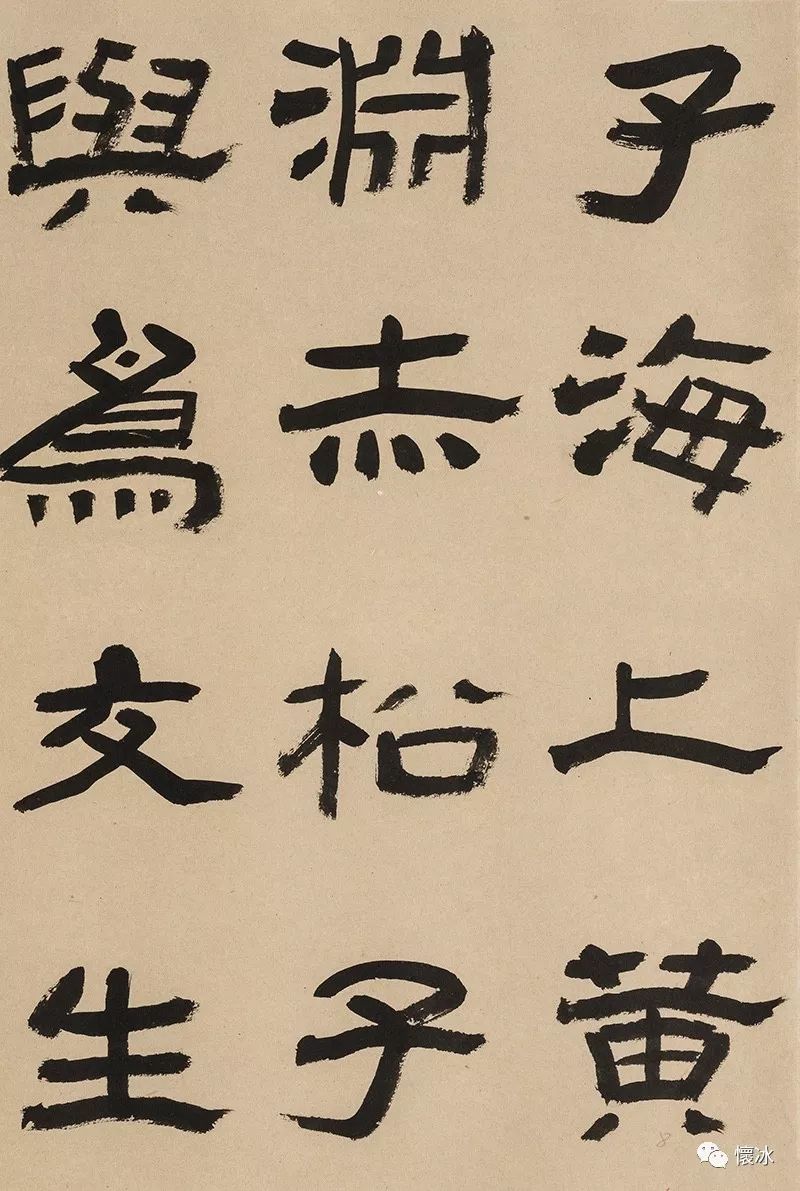 子海上黃
淵赤松子
與爲友生
8
懷冰